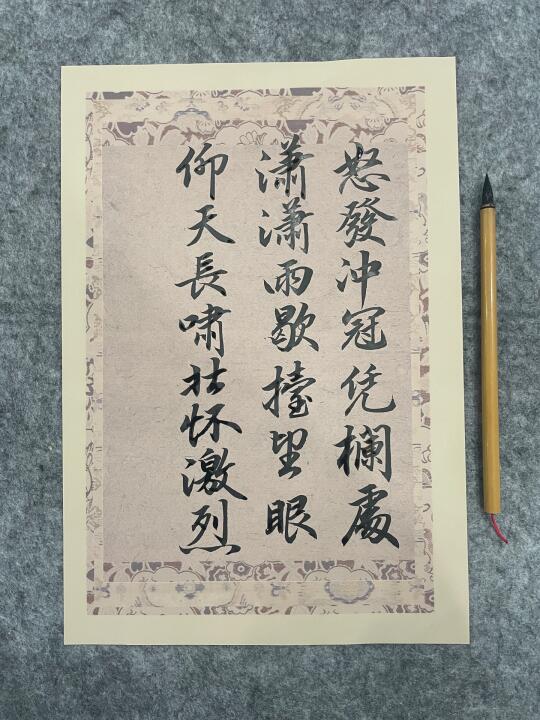 怒發沖冠凭欄處
瀟瀟雨歇擡望眼
仰天長嘯壮怀激烈